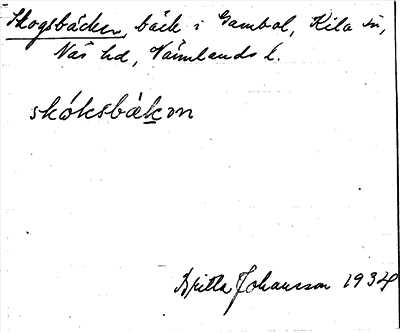 Skogsbäcken, bäck i Gambol, Kila sn,
Näs hd, Värmlands l.
skóksbäkən
Britta Johansson 1934